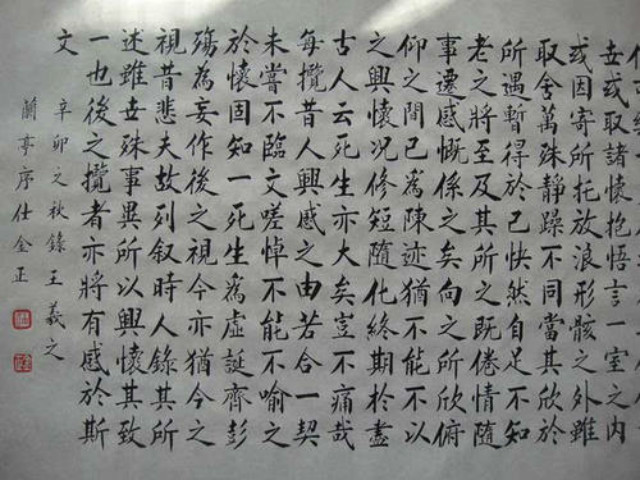 世或取諸懷抱悟言一室之内
或因寄所托放浪形骸之外雖
取舍萬殊靜躁不同當其欣於
所遇暫得於己快然自足不知
老之將至及其所之既倦情隨
事遷感慨係之矣向之所欣俯
仰之間已爲陳迹猶不能不以
之興懷况修短隨化終期於盡
古人云死生亦大矣豈不痛哉
每攬昔人興感之由若合一契
未嘗不臨文嗟悼不能不喻之
於懷固知一死生爲虛誕齊彭
殤為妄作後之視今亦猶今之
視昔悲夫故列叙時人錄其所
述雖世殊事異所以興懷其致
一也後之攬者亦將有感於斯
文
辛卯之秋錄王羲之
蘭亭序仕金正